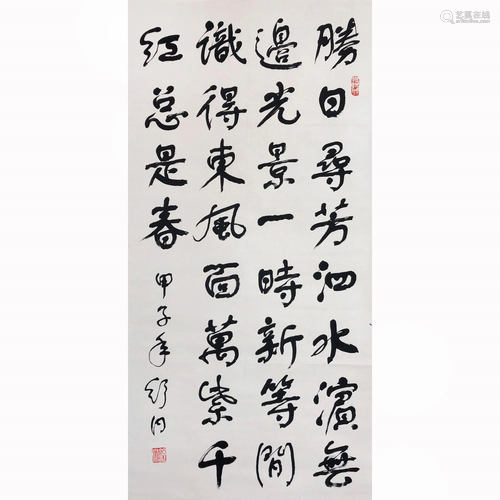 勝日尋芳泗水濱無
邊光景一時新等閒
識得東風面萬紫千
紅總是春
甲子年舒同
艺狐在线